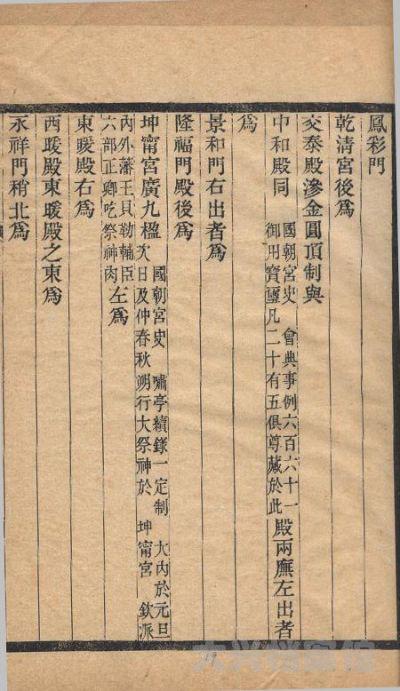 鳳彩門
乾清宮後爲
交泰殿滲金圓頂制與
中和殿同
國朝宮史 會典事例六百六十一
御用寶璽凡二十有五俱尊藏於此
殿兩廡左出者
爲
景和門右出者爲
隆福門殿後爲
坤甯宮廣九楹
國朝宮史 嘯亭續錄一定制 大內於元旦
次日及仲春秋朔行大祭神於 坤甯宮 欽派
內外藩王貝勒輔臣
六部正卿吃祭神肉
左爲
東暖殿右爲
西暖殿東暖殿之東爲
永祥門稍北爲